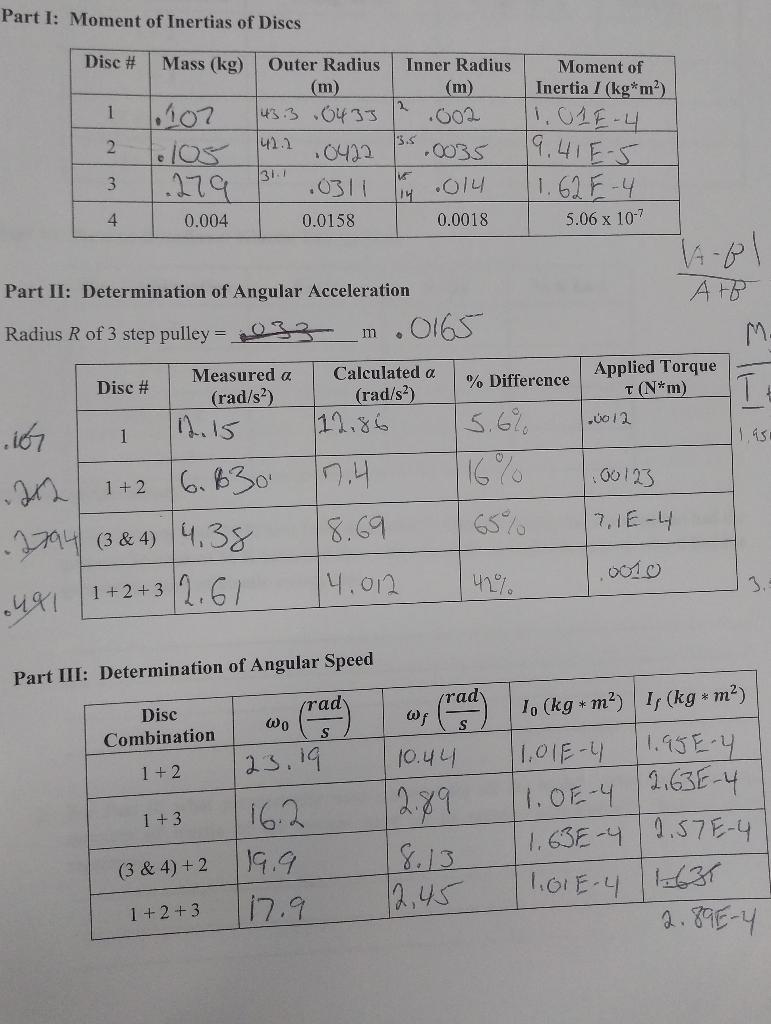 Part I: Moment of Inertias of Discs
Disc # Mass (kg) Outer Radius (m) Inner Radius (m) Moment of Inertia I (kg*m²)
1 .107 43.3 .0433 2 .002 1.01E-4
2 .105 42.2 .0422 3.5 .0035 9.41E-5
3 .279 31.1 .0311 14 .014 1.62E-4
4 0.004 0.0158 0.0018 5.06 x 10⁻⁷
|A-B|
A+B
Part II: Determination of Angular Acceleration
Radius R of 3 step pulley = .033 m .0165
Disc # Measured α (rad/s²) Calculated α (rad/s²) % Difference Applied Torque τ (N*m)
.107 1 12.15 12.86 5.6% .0012
.212 1 + 2 6.30 7.4 16% .00123
.2794 (3 & 4) 4.38 8.69 65% 7.1E-4
.491 1 + 2 + 3 2.61 4.012 42% .0010
Part III: Determination of Angular Speed
Disc Combination ω₀ (rad/s) ωf (rad/s) I₀ (kg * m²) If (kg * m²)
1 + 2 23.19 10.44 1.01E-4 1.95E-4
1 + 3 16.2 2.89 1.0E-4 2.63E-4
(3 & 4) + 2 19.9 8.13 1.63E-4 2.57E-4
1 + 2 + 3 17.9 2.45 1.01E-4
2.89E-4